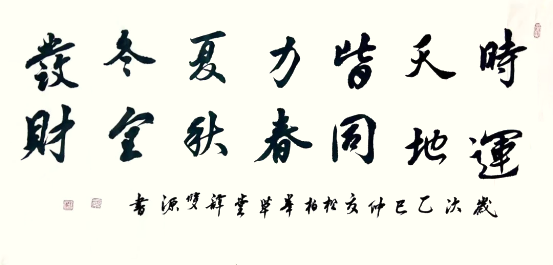 時運
天地
皆同
力春
夏秋
冬全
發財
歲次乙巳仲夏松柏草堂薛雙源書